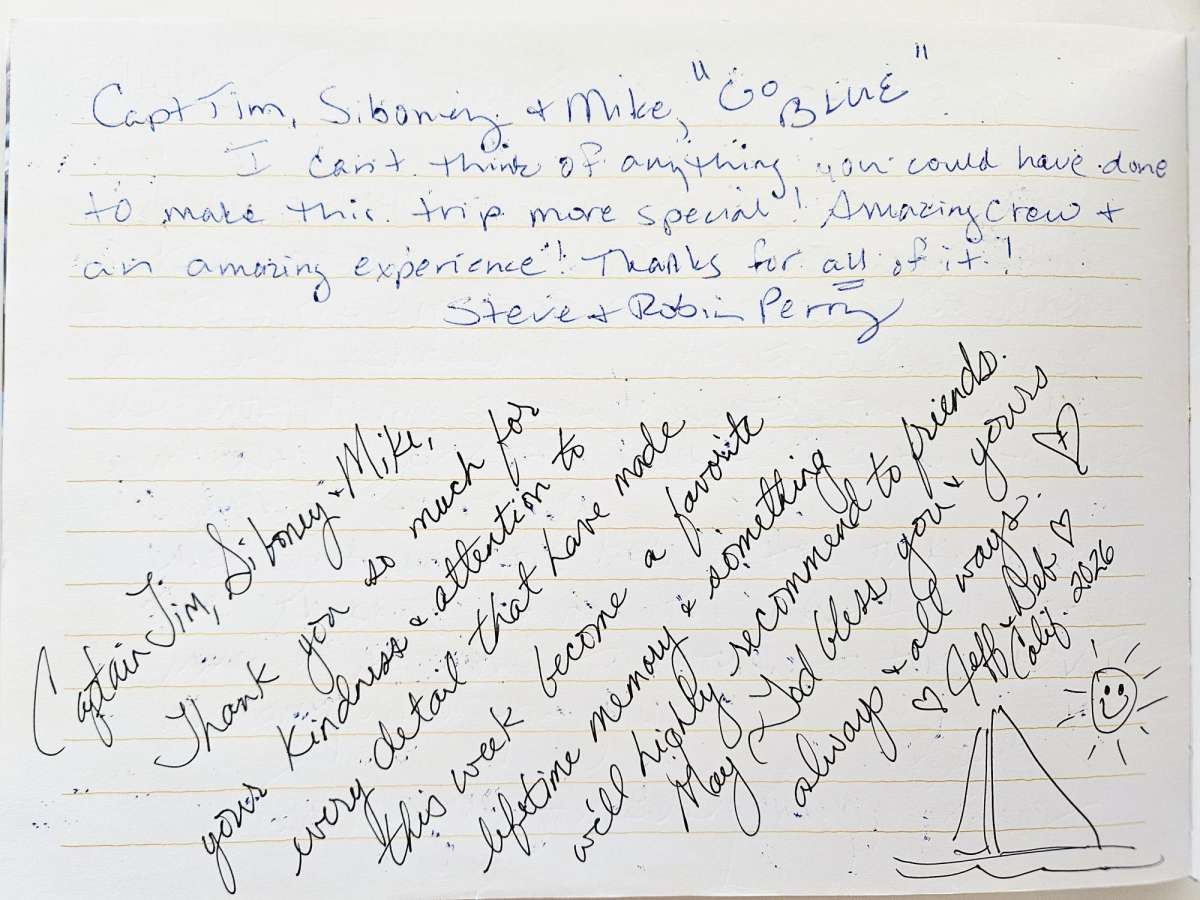 Capt Tim, Siboney + Mike, "GO BLUE"
I can't think of anything you could have done
to make this trip more special! Amazing Crew +
an amazing experience! Thanks for all of it!
Steve + Robin Perry
Captain Tim, Siboney + Mike,
Thank you so much for
your kindness & attention to
every detail that have made
this week become a favorite
lifetime memory & something
will highly recommend to friends.
May God bless you & yours
always & all ways.
♡ Jeff & Deb ♡
Calif. 2026